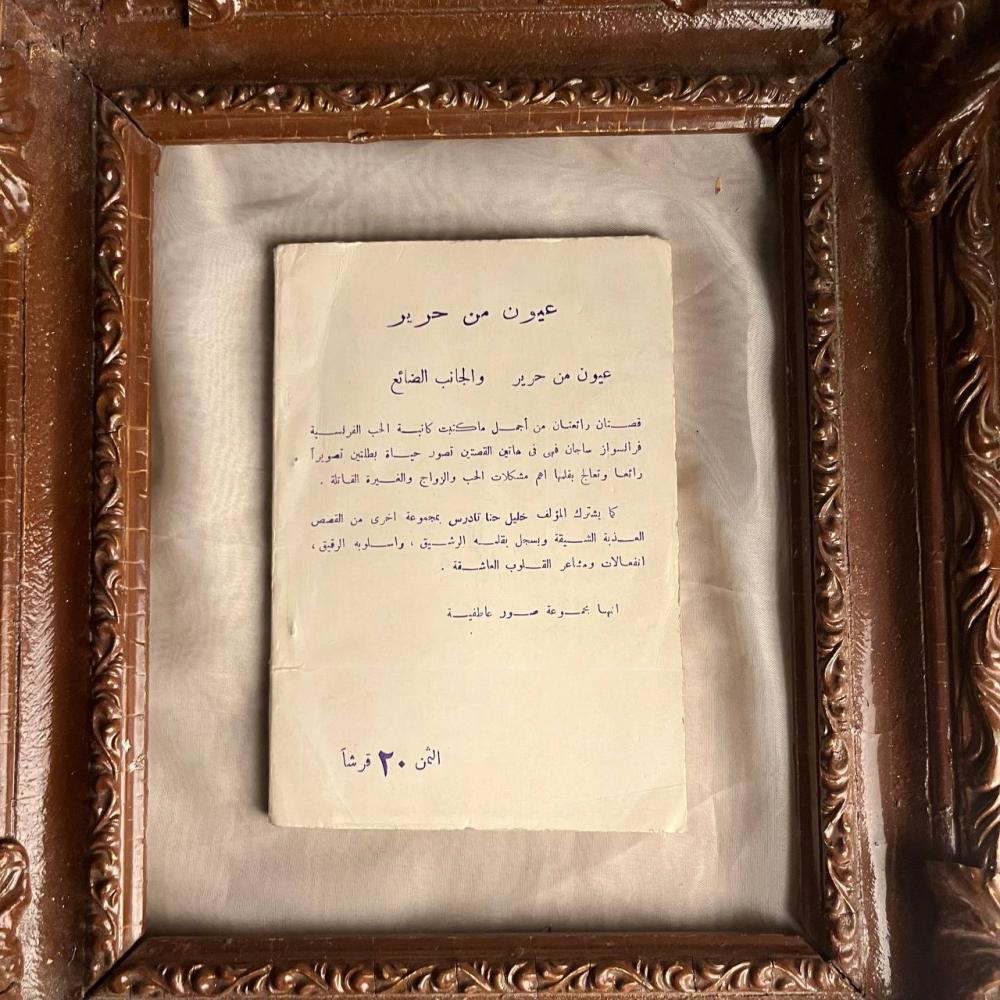 عيون من حرير
عيون من حرير والجانب الضائع
قصتان رائعتان من أجمل ماكتبت كاتبة الحب الفرنسية
فرانسواز ساجان فهى فى هاتين القصتين تصور حياة بطلتين تصويراً
رائعا وتعالج بقلمها اهم مشكلات الحب والزواج والغيرة القاتلة .
كما يشترك المؤلف خليل حنا تادرس بمجموعة اخرى من القصص
العذبة الشيقة ويسجل بقلمه الرشيق ، واسلوبه الرقيق ،
انفعالات ومشاعر القلوب العاشقة .
انها مجموعة صور عاطفية
الثمن ٢٠ قرشاً